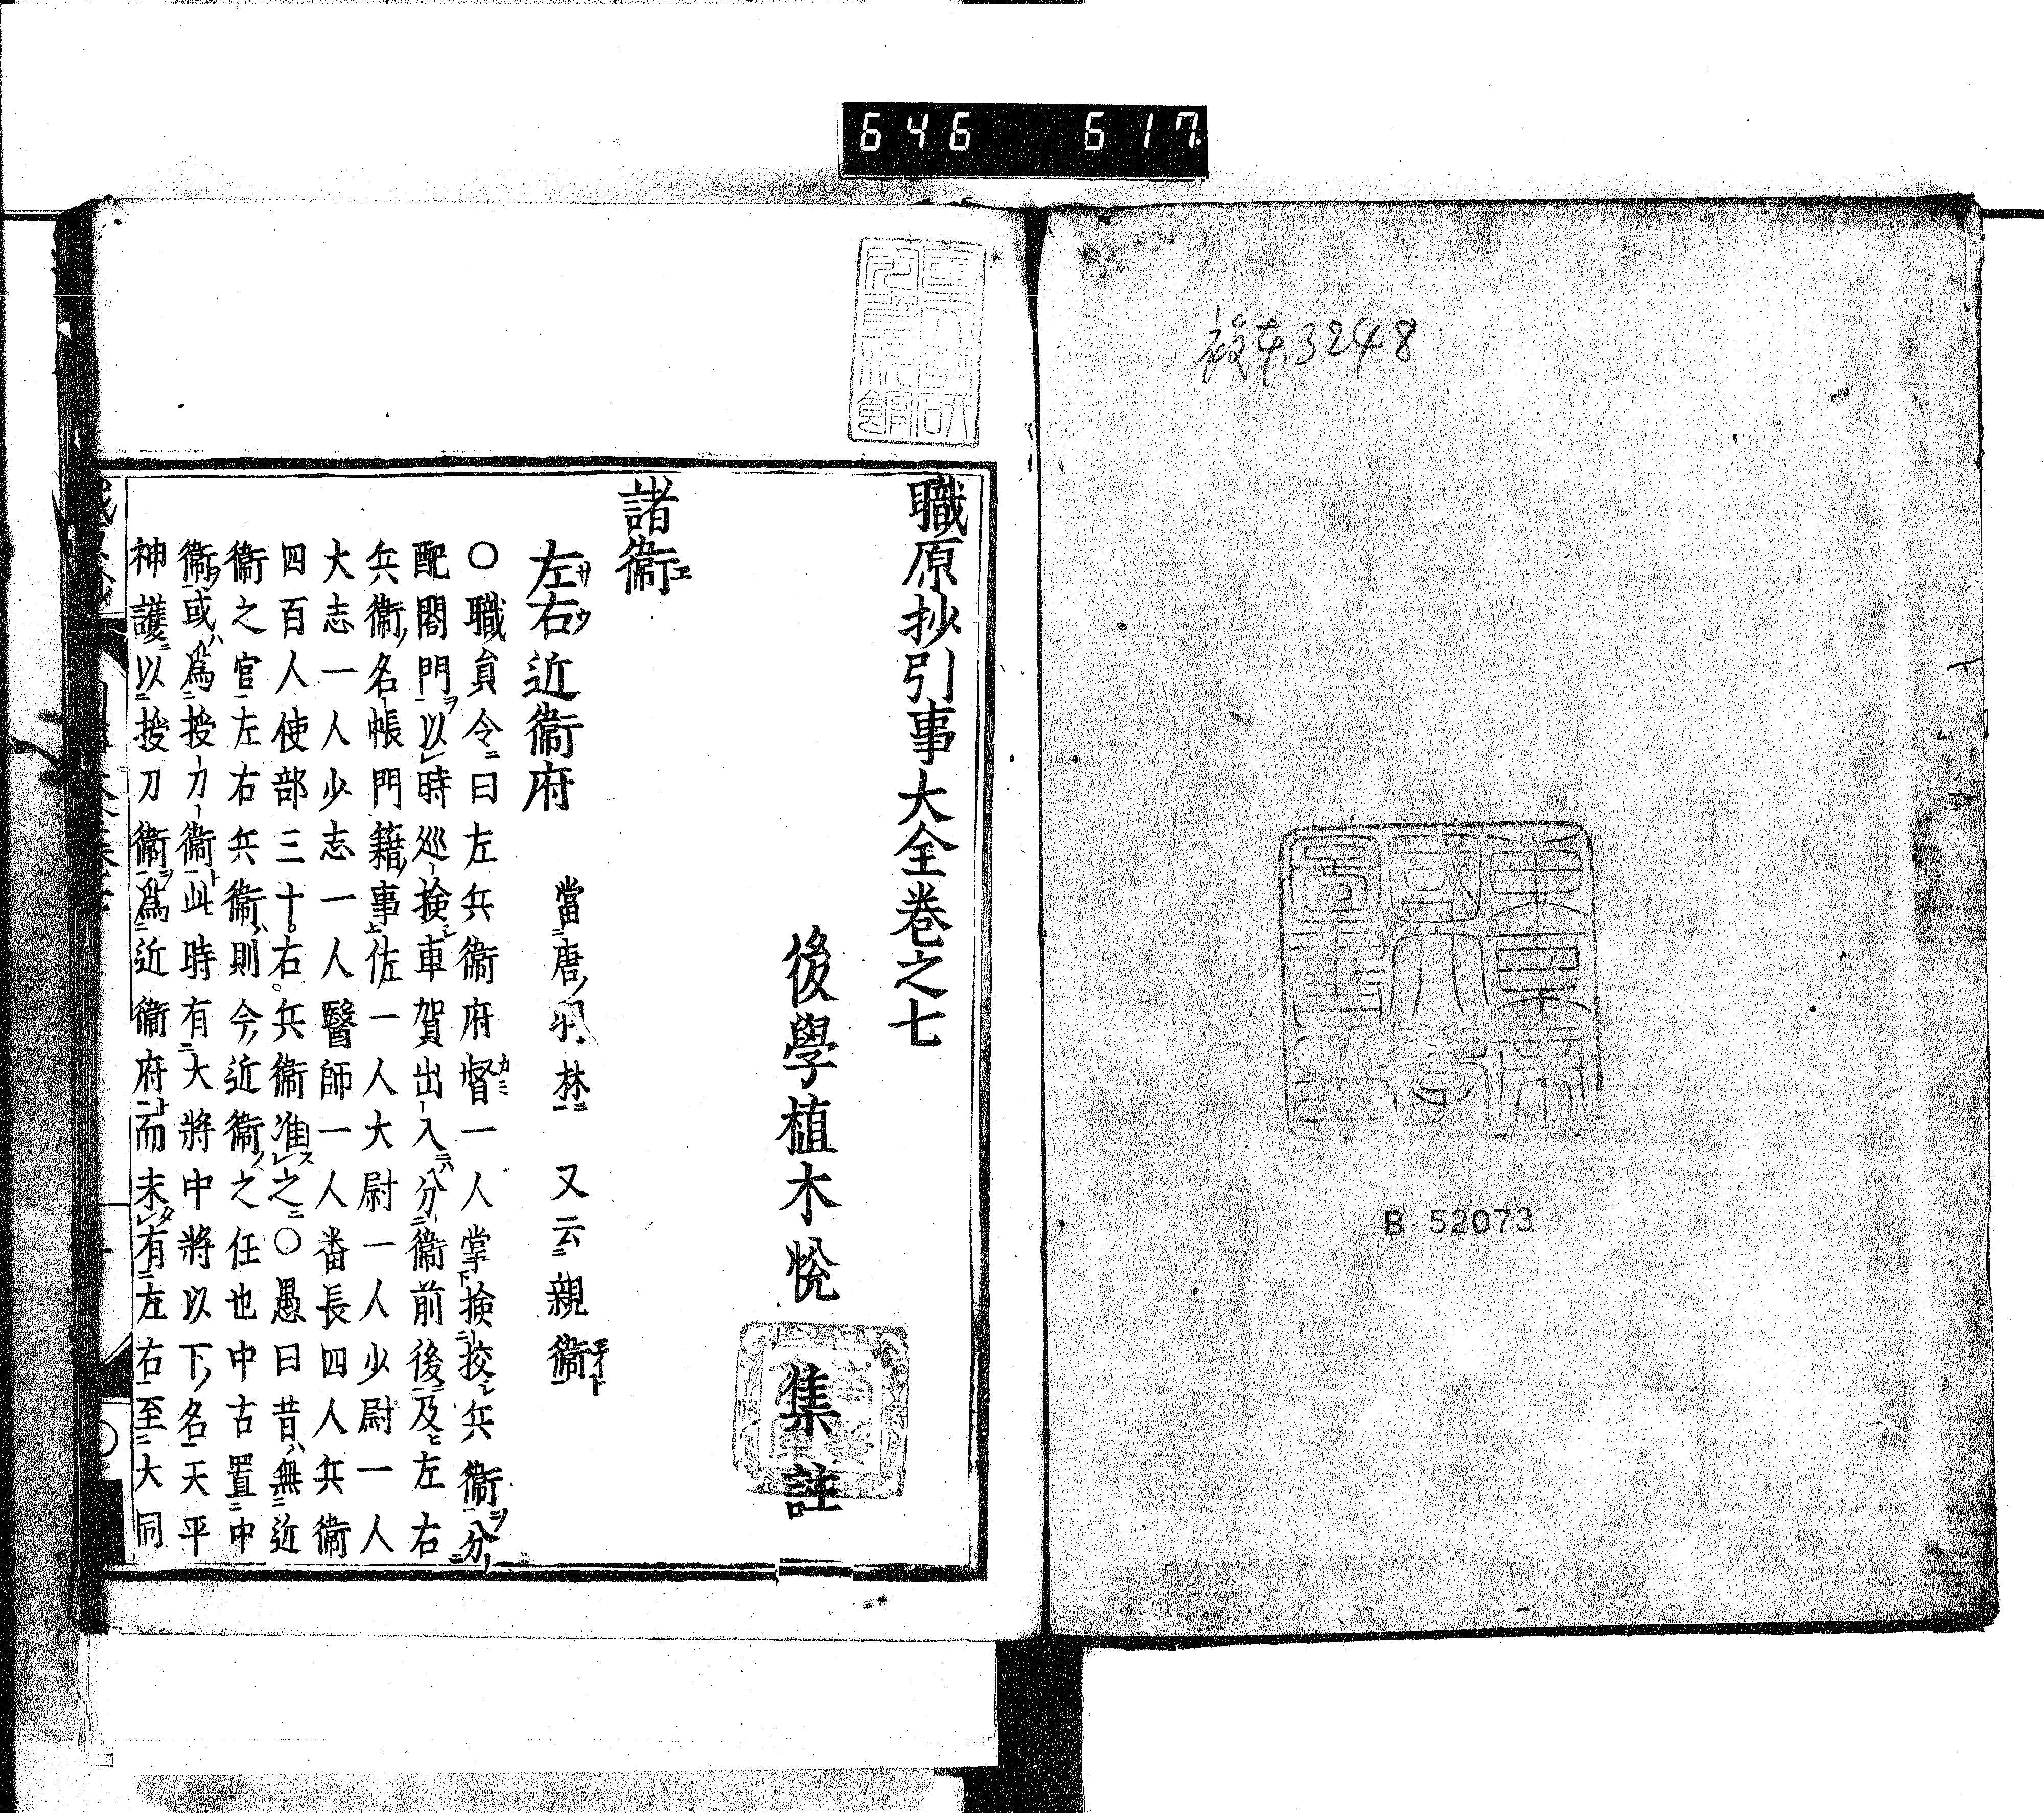 646 617
3248
東京帝國大學圖書
B 52073
職原抄引事大全卷之七
後學植木悅 集註
諸衞
左右近衞府 當唐羽林 又云親衞
〇職員令曰左兵衞府督一人掌撿挍兵衞分
配閤門以時巡撿車賀出入分衞前後及左右
兵衞名帳門籍事佐一人大尉一人少尉一人
大志一人少志一人醫師一人番長四人兵衞
四百人使部三十右兵衞准之〇愚曰昔無近
衞之官左右兵衞則今近衞之任也中古置中
衞或爲授力衞此時有大將中將以下名天平
神護以授刀衞爲近衞府而未有左右至大同